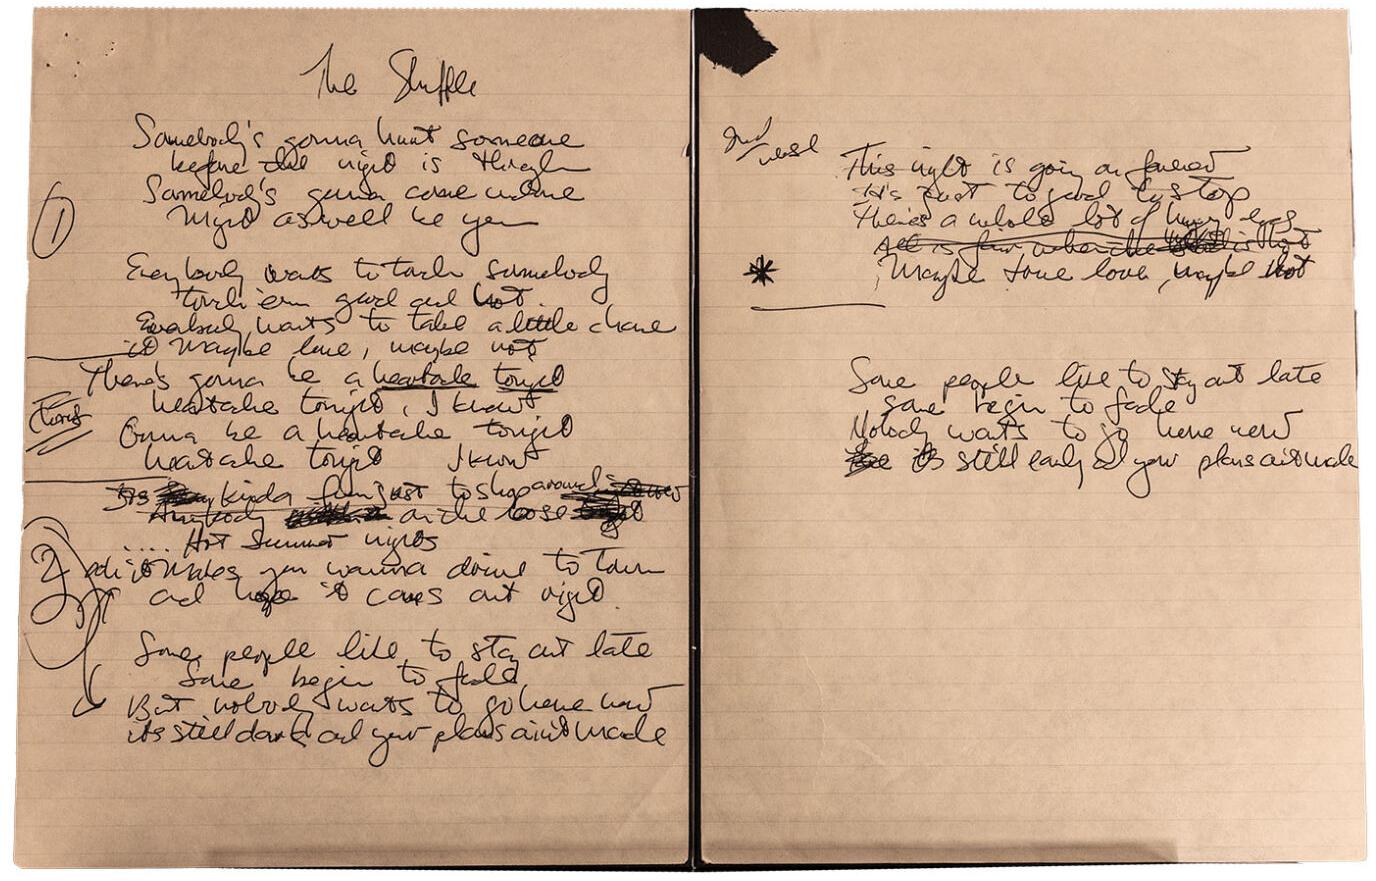 The Shuffle
Somebody's gonna hurt someone
before the night is through
Somebody's gonna come undone
Might as well be you
1
Everybody wants to touch somebody
touch 'em good and hot.
Everybody wants to take a little chance
Maybe love, maybe not
There's gonna be a heartache tonight
heartache tonight, I know
Chorus
Gonna be a heartache tonight
heartache tonight I know
kinda fun just to shop around
Anybody on the loose
.... Hot Summer nights
2 makes you wanna drive to town
and hope it comes out right.
Some people like to stay out late
Some begin to fade
But nobody wants to go home now
it's still dark and your plans ain't made
This night is going on forever
it's just too good to stop
There's a whole lot of hungry eyes
All is fair when the
*
Maybe some love, maybe not
Some people like to stay out late
some begin to fade
Nobody wants to go home now
it's still early and your plans ain't made